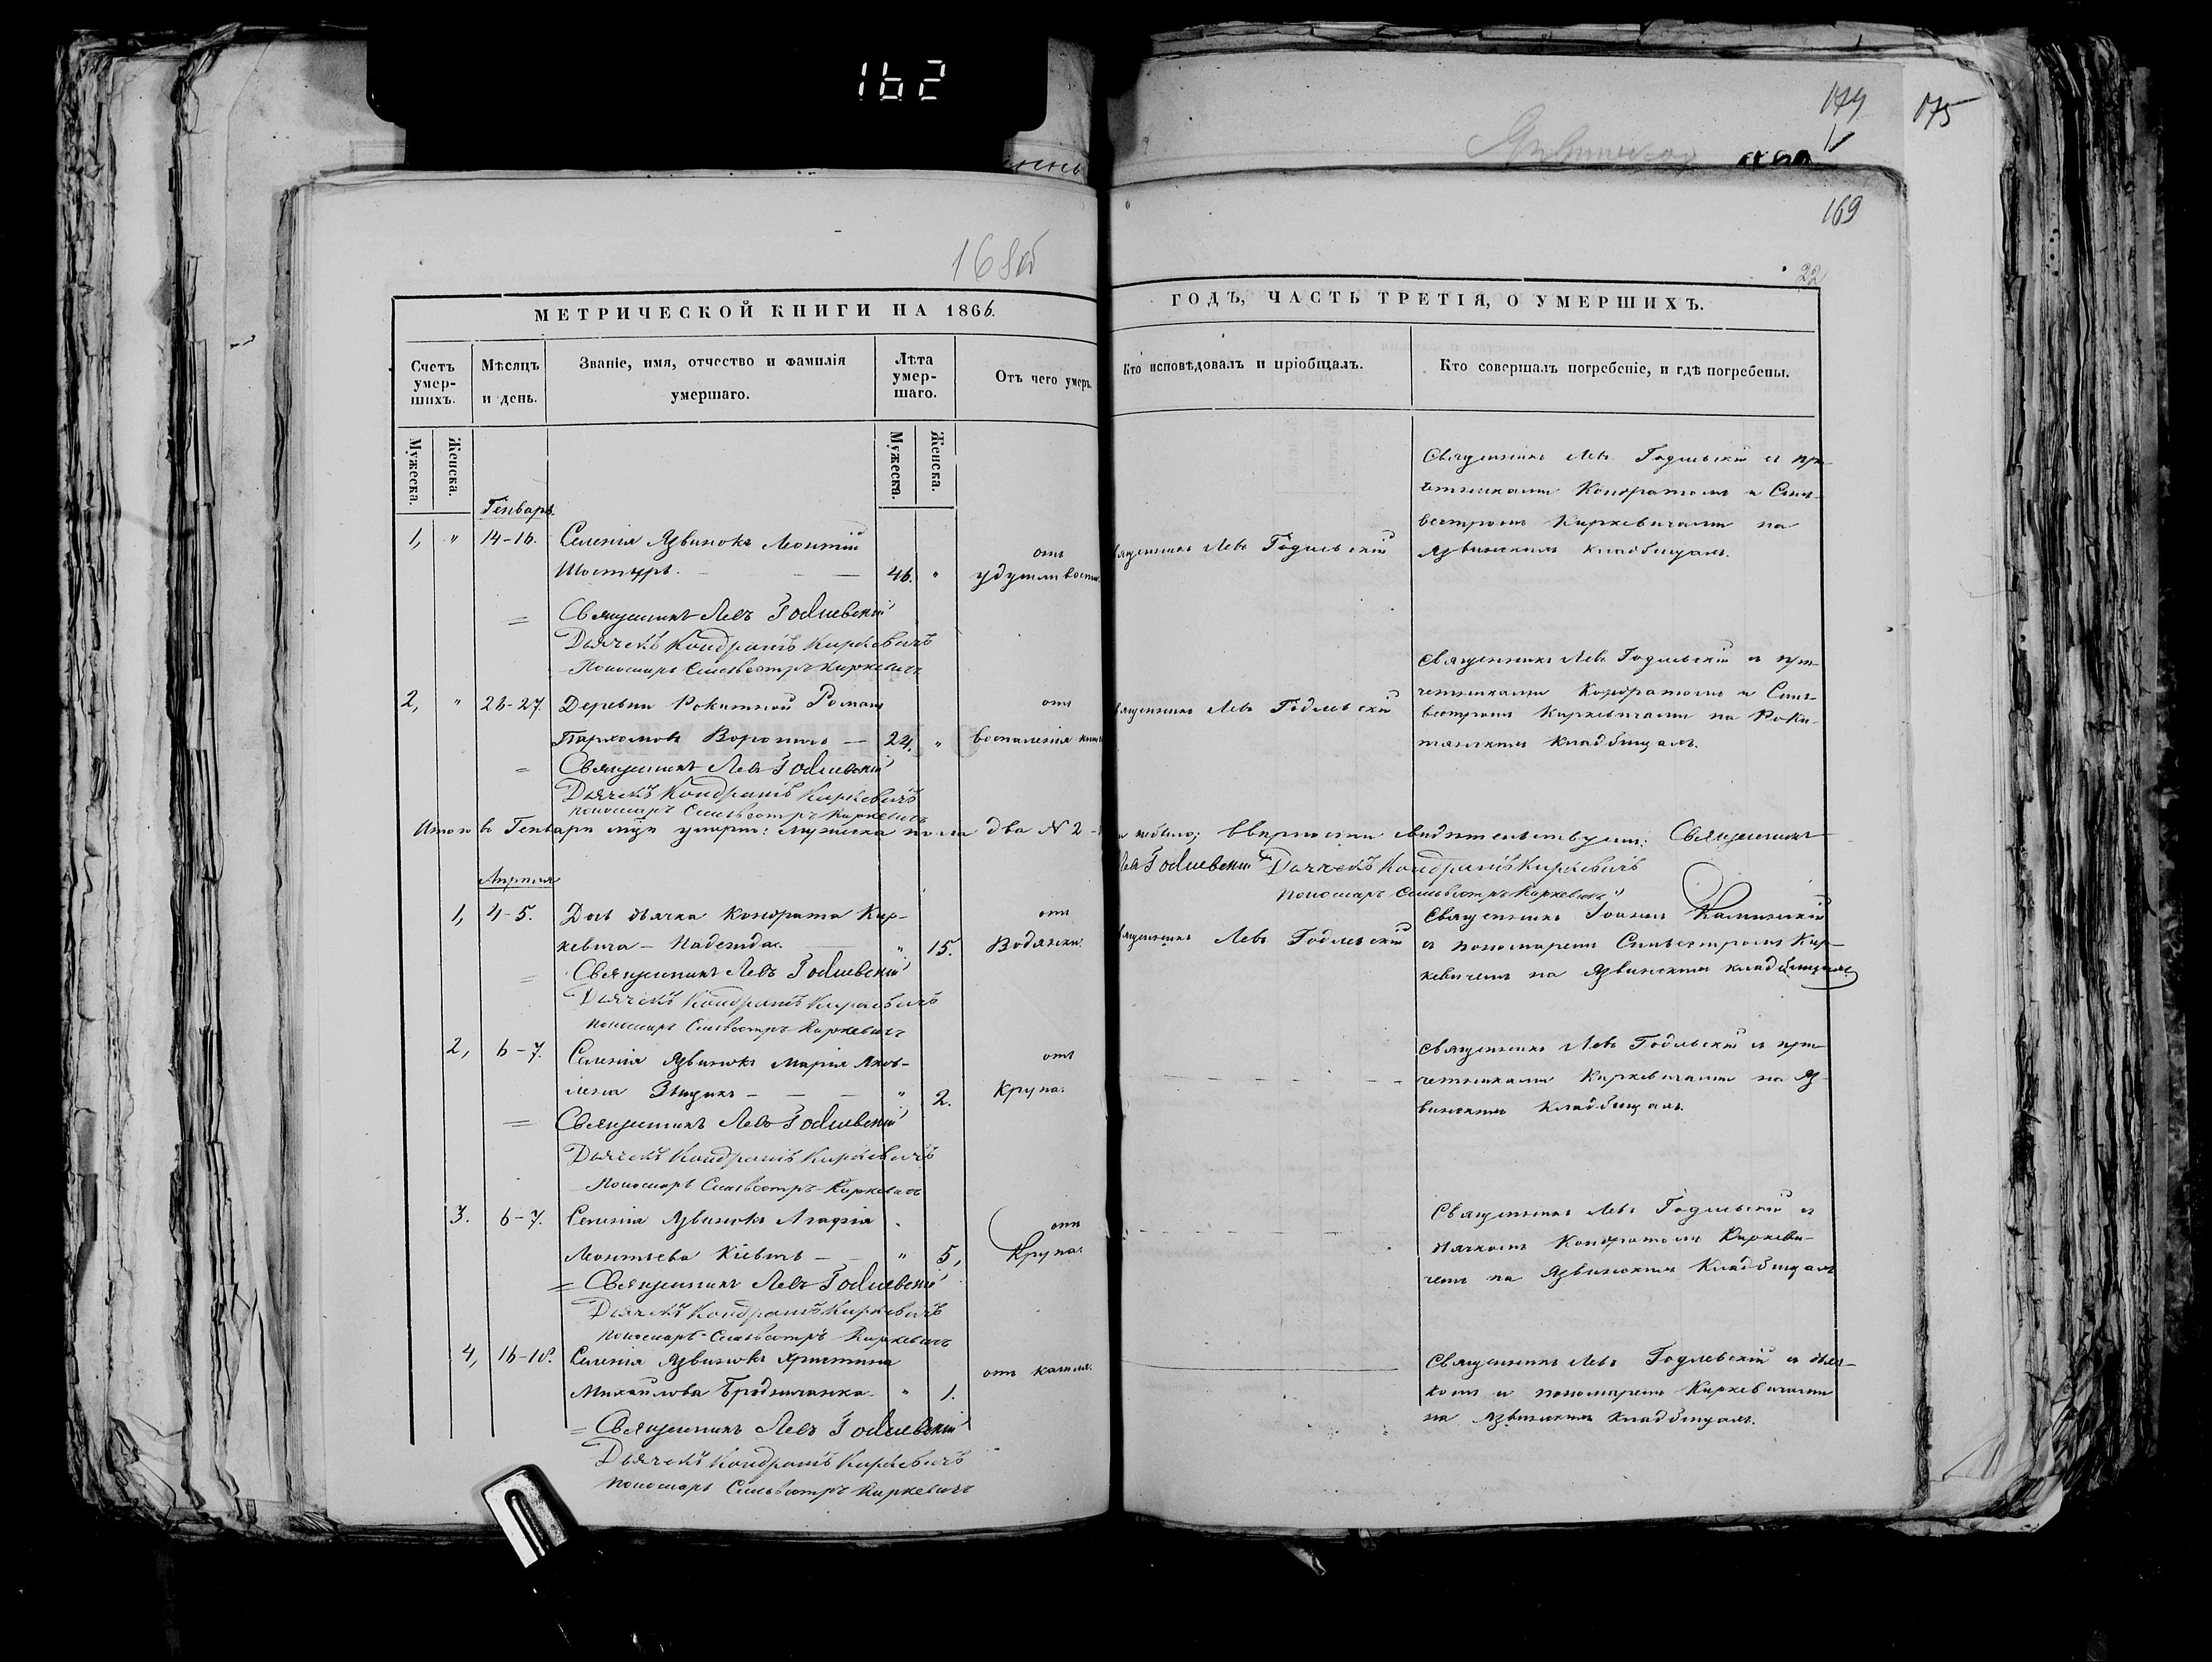 162
174
175
169
168об
22
МЕТРИЧЕСКОЙ КНИГИ НА 1866.
ГОДЪ, ЧАСТЬ ТРЕТІЯ, О УМЕРШИХЪ.
Счетъ умер-шихъ.
Мѣсяцъ и день.
Званіе, имя, отчество и фамилія умершаго.
Лѣта умер-шаго.
Отъ чего умеръ.
Кто исповѣдовалъ и пріобщалъ.
Кто совершалъ погребеніе, и гдѣ погребены.
Мужеска.
Женска.
Мужеска.
Женска.
Генварь.
1, " 14-16. Селенія Язвинокъ Леонтій
Шостуръ. — — 46. "
отъ
удушливости.
Священникъ Левъ Годлевскій
Священникъ Левъ Годлевскій съ при-
четниками Кондратомъ и Силь-
вестромъ Киркевичами на
Язвинскомъ кладбищахъ.
= Священникъ Левъ Годлевскій
Дьячекъ Кондратъ Киркевичъ
Пономарь Сильвестръ Киркевичъ
2, " 26-27. Деревни Рокитной Романъ
Пархомовъ Воропичъ — 24. "
отъ
воспаленія
Священникъ Левъ Годлевскій
Священникъ Левъ Годлевскій съ при-
четниками Кондратомъ и Силь-
вестромъ Киркевичами на Роки-
тянскомъ кладбищахъ.
= Священникъ Левъ Годлевскій
Дьячекъ Кондратъ Киркевичъ
пономарь Сильвестръ Киркевичъ
Итого въ Генваре мцѣ умерло: мужеска пола два № 2
небыло; Вѣрности свидѣтельствуемъ: Священникъ
Левъ Годлевскій Дьячекъ Кондратъ Киркевичъ
пономарь Сильвестръ Киркевичъ
Апрѣля
1, 4-5. Дочь дьячка Кондрата Кир-
кевича — Надежда. — " 15.
отъ
Водянки.
Священникъ Левъ Годлевскій
Священникъ Іоаннъ Калинскій
съ пономаремъ Сильвестромъ Кир-
кевичемъ на Язвинскомъ кладбищахъ
= Священникъ Левъ Годлевскій
Дьячекъ Кондратъ Киркевичъ
пономарь Сильвестръ Киркевичъ
2, 6-7. Селенія Язвинокъ Марія Яков-
лева — — " 2.
отъ
Крупа.
Священникъ Левъ Годлевскій съ при-
четниками Киркевичами на Яз-
винскомъ Кладбищахъ.
= Священникъ Левъ Годлевскій
Дьячекъ Кондратъ Киркевичъ
Пономарь Сильвестръ Киркевичъ
3. 6-7. Селенія Язвинокъ Агафія
Леонтьева Кіевичъ — " 5,
отъ
Крупа.
Священникъ Левъ Годлевскій съ
дьячкомъ Кондратомъ Киркеви-
чемъ на Язвинскомъ Кладбищахъ
= Священникъ Левъ Годлевскій
Дьячекъ Кондратъ Киркевичъ
пономарь Сильвестръ Киркевичъ
4, 16-18. Селенія Язвинокъ Христина
Михайлова Бродничанка. " 1.
отъ кашля.
Священникъ Левъ Годлевскій съ дьяч-
комъ и пономаремъ Киркевичами
на Язвинскомъ кладбищахъ.
= Священникъ Левъ Годлевскій
Дьячекъ Кондратъ Киркевичъ
пономарь Сильвестръ Киркевичъ